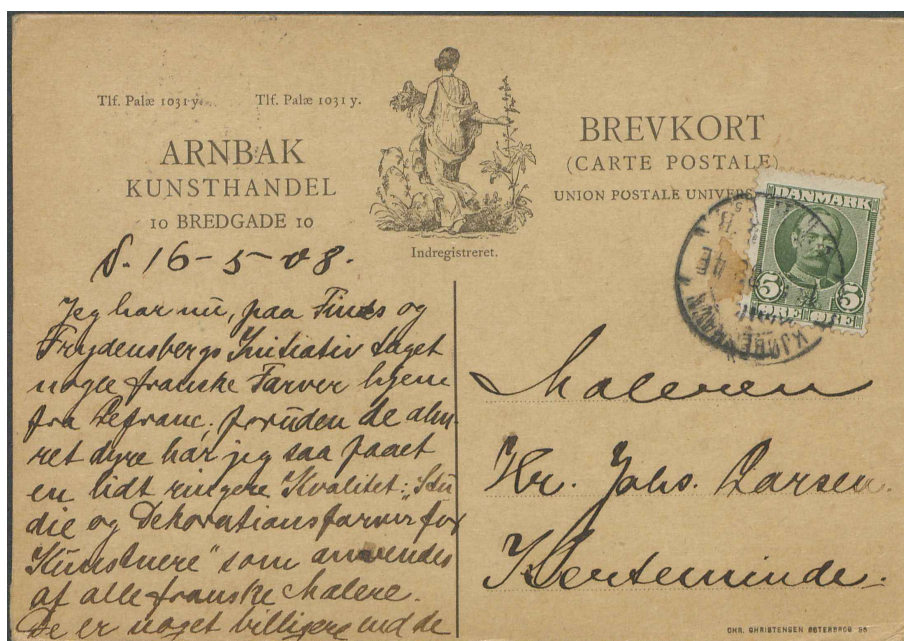 Tlf. Palæ 1031 y. Tlf. Palæ 1031 y.
ARNBAK
KUNSTHANDEL
10 BREDGADE 10
Indregistreret.
BREVKORT
(CARTE POSTALE)
UNION POSTALE UNIVERS
DANMARK
5 5
ØRE ØRE
KJØBENHAVN
16-5-08.
Jeg har nu, paa Finds og
Frydensbergs Initiativ taget
nogle franske Farver hjem
fra Lefranc. foruden de
dyre har jeg saa faaet
en lidt ringere Kvalitet: „Stu
die og Dekorationsfarver for
Kunstnere" som anvendes
af alle franske Malere.
De er noget billigere end de
Maleren
Hr. Johs. Larsen.
Kerteminde.
CHR. CHRISTENSEN ØSTERBROG 96